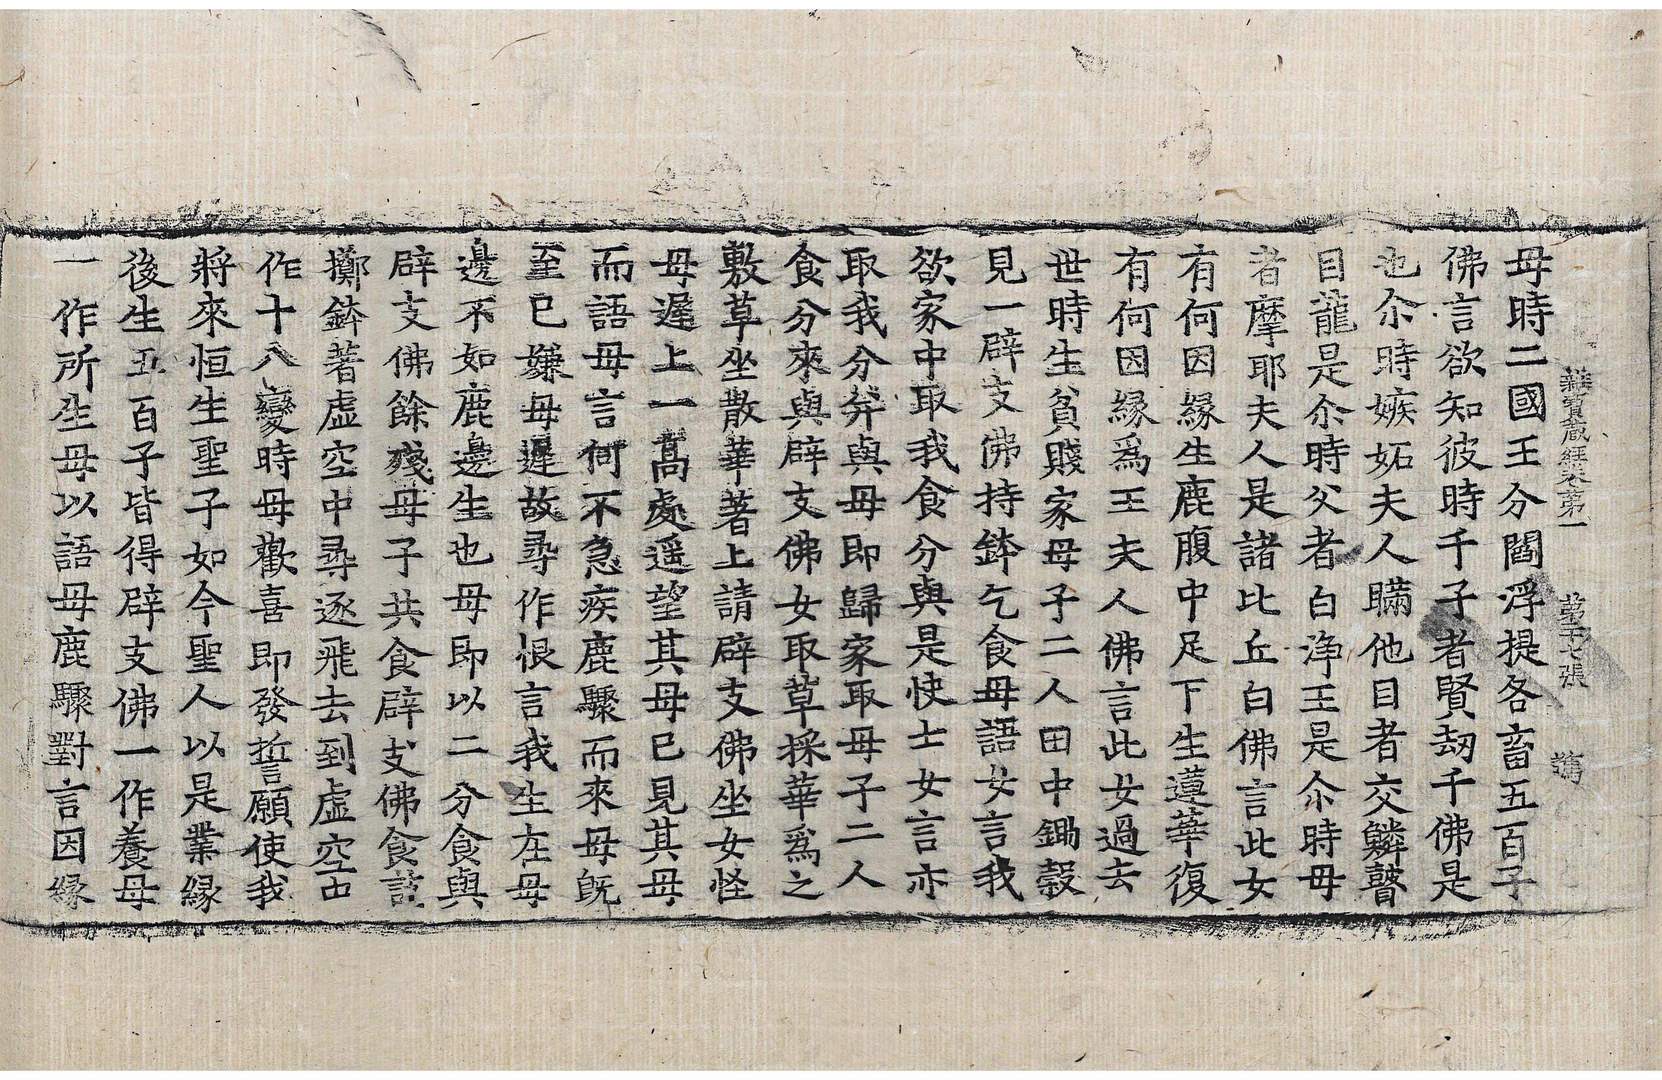 雜寶藏經卷第一 第十七張 篤
母時二國王分閻浮提各畜五百子
佛言欲知彼時千子者賢劫千佛是
也尒時嫉妬夫人瞞他目者交鱗瞽
目龍是尒時父者白淨王是尒時母
者摩耶夫人是諸比丘白佛言此女
有何因緣生鹿腹中足下生蓮華復
有何因緣爲王夫人佛言此女過去
世時生貧賤家母子二人田中鋤穀
見一辟支佛持鉢乞食母語女言我
欲家中取我食分與是快士女言亦
取我分幷與母即歸家取母子二人
食分來與辟支佛女取草採華爲之
敷草坐散華著上請辟支佛坐女怪
母遲上一高處遥望其母已見其母
而語母言何不急疾鹿驟而來母旣
至已嫌母遲故尋作恨言我生在母
邊不如鹿邊生也母即以二分食與
辟支佛餘殘母子共食辟支佛食訖
擲鉢著虛空中尋逐飛去到虛空中
作十八變時母歡喜即發誓願使我
將來恒生聖子如今聖人以是業緣
後生五百子皆得辟支佛一作養母
一作所生母以語母鹿驟對言因緣